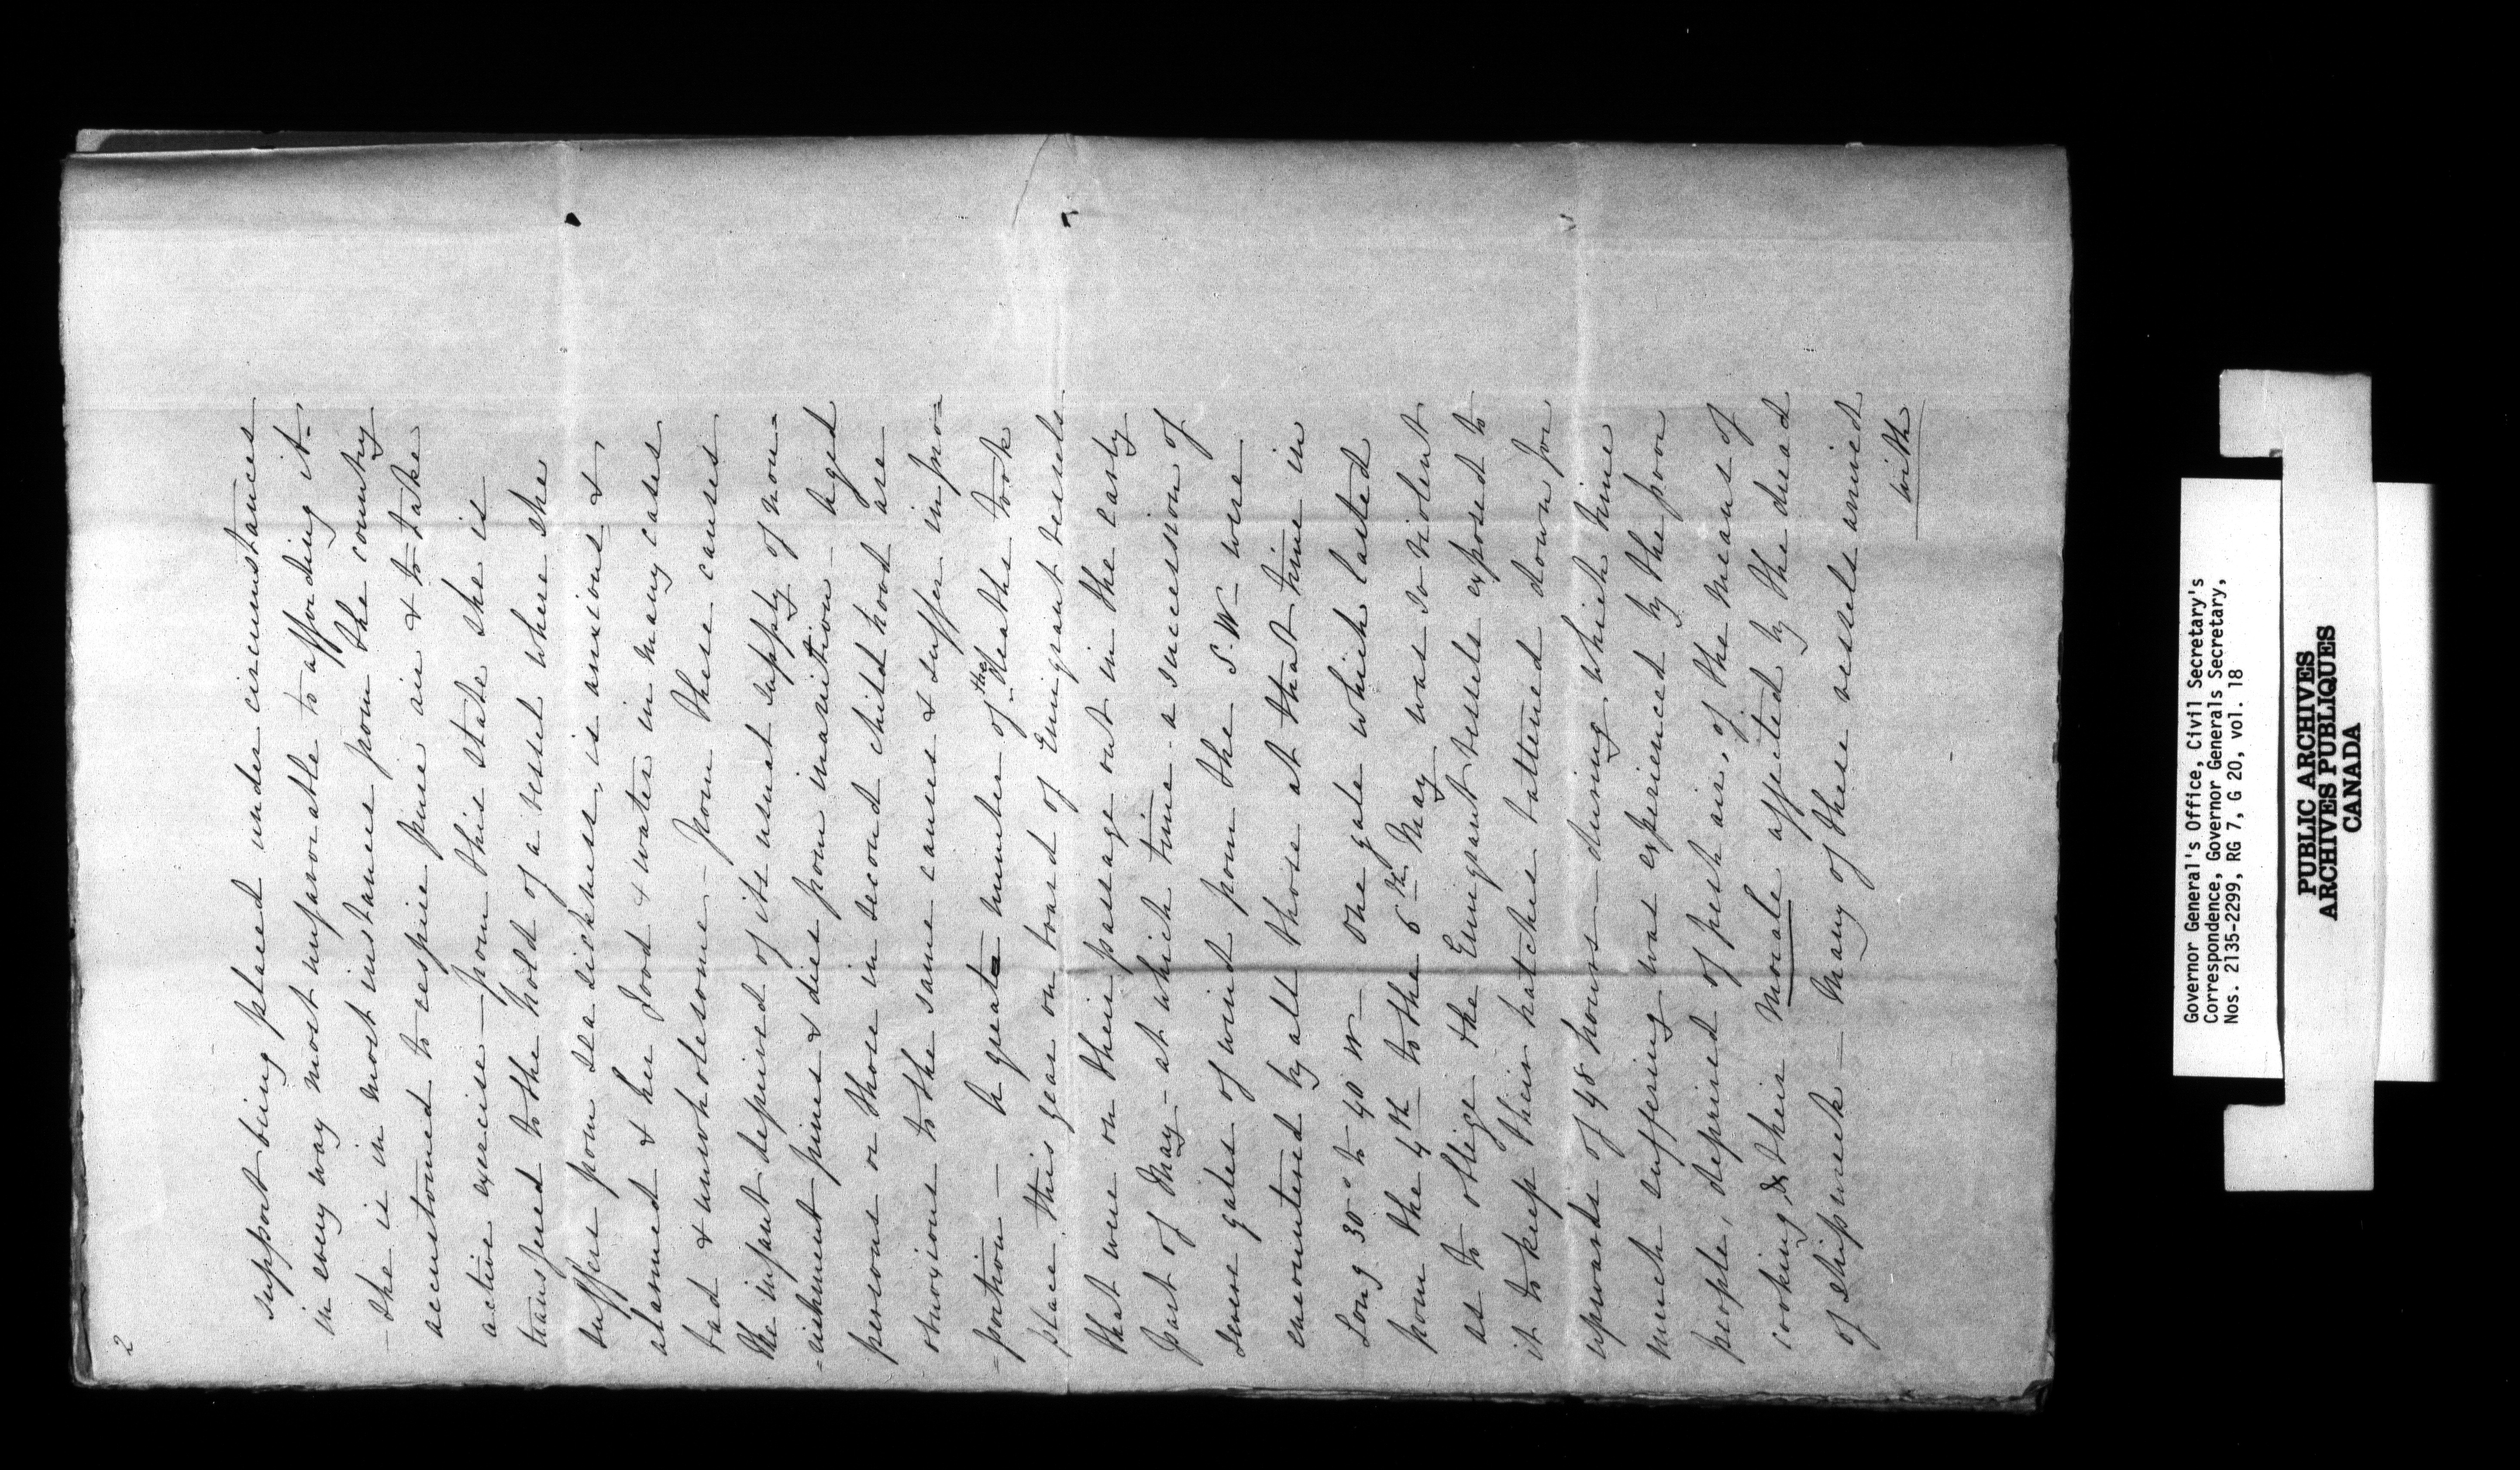 2
support being placed under circumstances
in every way most unfavorable to affording it.
- She is in most instances from the country
accustomed to respire pure air & to take
active exercise - from this state she is
transfered to the hold of a vessel where she
suffers from sea sickness, is anxious &
alarmed & her food & water in many cases
bad & unwholesome - from these causes
the infant deprived of its usual supply of nou=
=rishment pines & dies from inanition - aged
persons or those in second childhood are
obnoxious to the same causes & suffer in pro=
=portion - A great number of the deaths took
place this year on board of Emigrant vessels
that were on their passage out in the early
part of May - at which time a succession of
severe gales of wind from the S.W- were
encountered by all those at that time in
Long 30° to 40 W- One gale which lasted
from the 4th to the 6th May was so violent
as to oblige the Emigrant vessels exposed to
it to keep their hatches battened down for
upwards of 48 hours - during which time
much suffering was experienced by the poor
people, deprived of fresh air, of the means of
cooking, & their morale affected by the dread
of shipwreck - Many of these vessels arrived
with
Governor General's Office, Civil Secretary's
Correspondence, Governor Generals Secretary,
Nos. 2135-2299, RG 7, G 20, vol. 18
PUBLIC ARCHIVES
ARCHIVES PUBLIQUES
CANADA